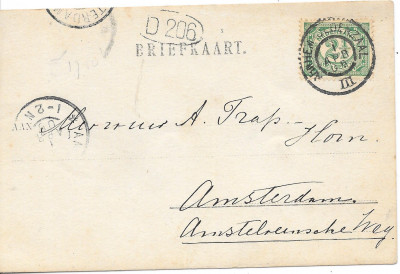 D 206
BRIEFKAART.
III
1-2 N
Mevrouw A. Trap-
Horn.
Amsterdam.
Amstelveensche Weg.